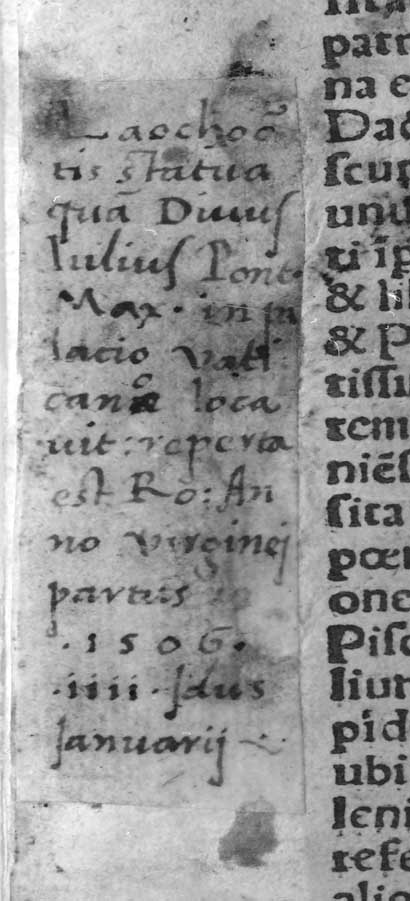 Laochoō
tis statua
quā Diuus
Iulius Pont.
Max. in pa
lacio vati
cano loca
uit: reperta
est Ro: An
no virginei
partus
.1506.
.iiii. Idus
Januarij
patr
na e
Dad
scup
unu
ti ip
& li
& P
tissi
tem
niēs
sita
pœn
one
Pisc
liun
pid
ubi
leni
refe
alio